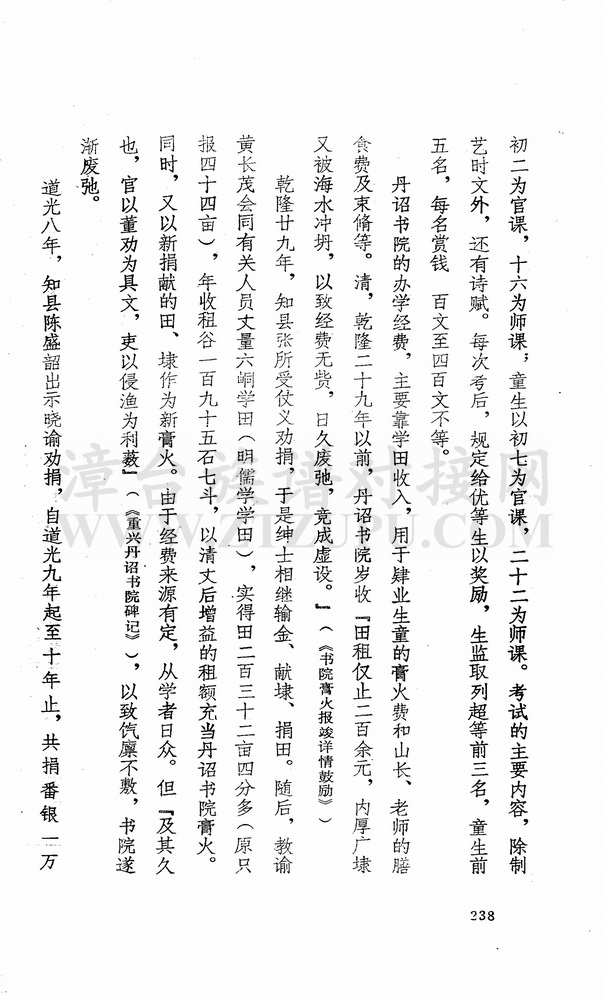 初二为官课，十六为师课；童生以初七为官课，二十二为师课。考试的主要内容，除制
艺时文外，还有诗赋。每次考后，规定给优等生以奖励，生监取列超等前三名，童生前
五名，每名赏钱 百文至四百文不等。
丹诏书院的办学经费，主要靠学田收入，用于肄业生童的膏火费和山长、老师的膳
食费及束脩等。清，乾隆二十九年以前，丹诏书院岁收『田租仅止二百余元，内厚广埭
又被海水冲坍，以致经费无赀，日久废弛，竟成虚设。』（《书院膏火报竣详情鼓励》）
乾隆廿九年，知县张所受仗义劝捐，于是绅士相继输金、献埭、捐田。随后，教谕
黄长茂会同有关人员丈量六峒学田（明儒学学田），实得田二百三十二亩四分多（原只
报四十四亩），年收租谷一百九十五石七斗，以清丈后增益的租额充当丹诏书院膏火。
同时，又以新捐献的田、埭作为新膏火。由于经费来源有定，从学者日众。但『及其久
也，官以董劝为具文，吏以侵渔为利薮』（《重兴丹诏书院碑记》），以致饩廪不敷，书院遂
渐废弛。
道光八年，知县陈盛韶出示晓谕劝捐，自道光九年起至十年止，共捐番银一万
238
漳台族谱对接网
WWW.ZTZUPU.COM